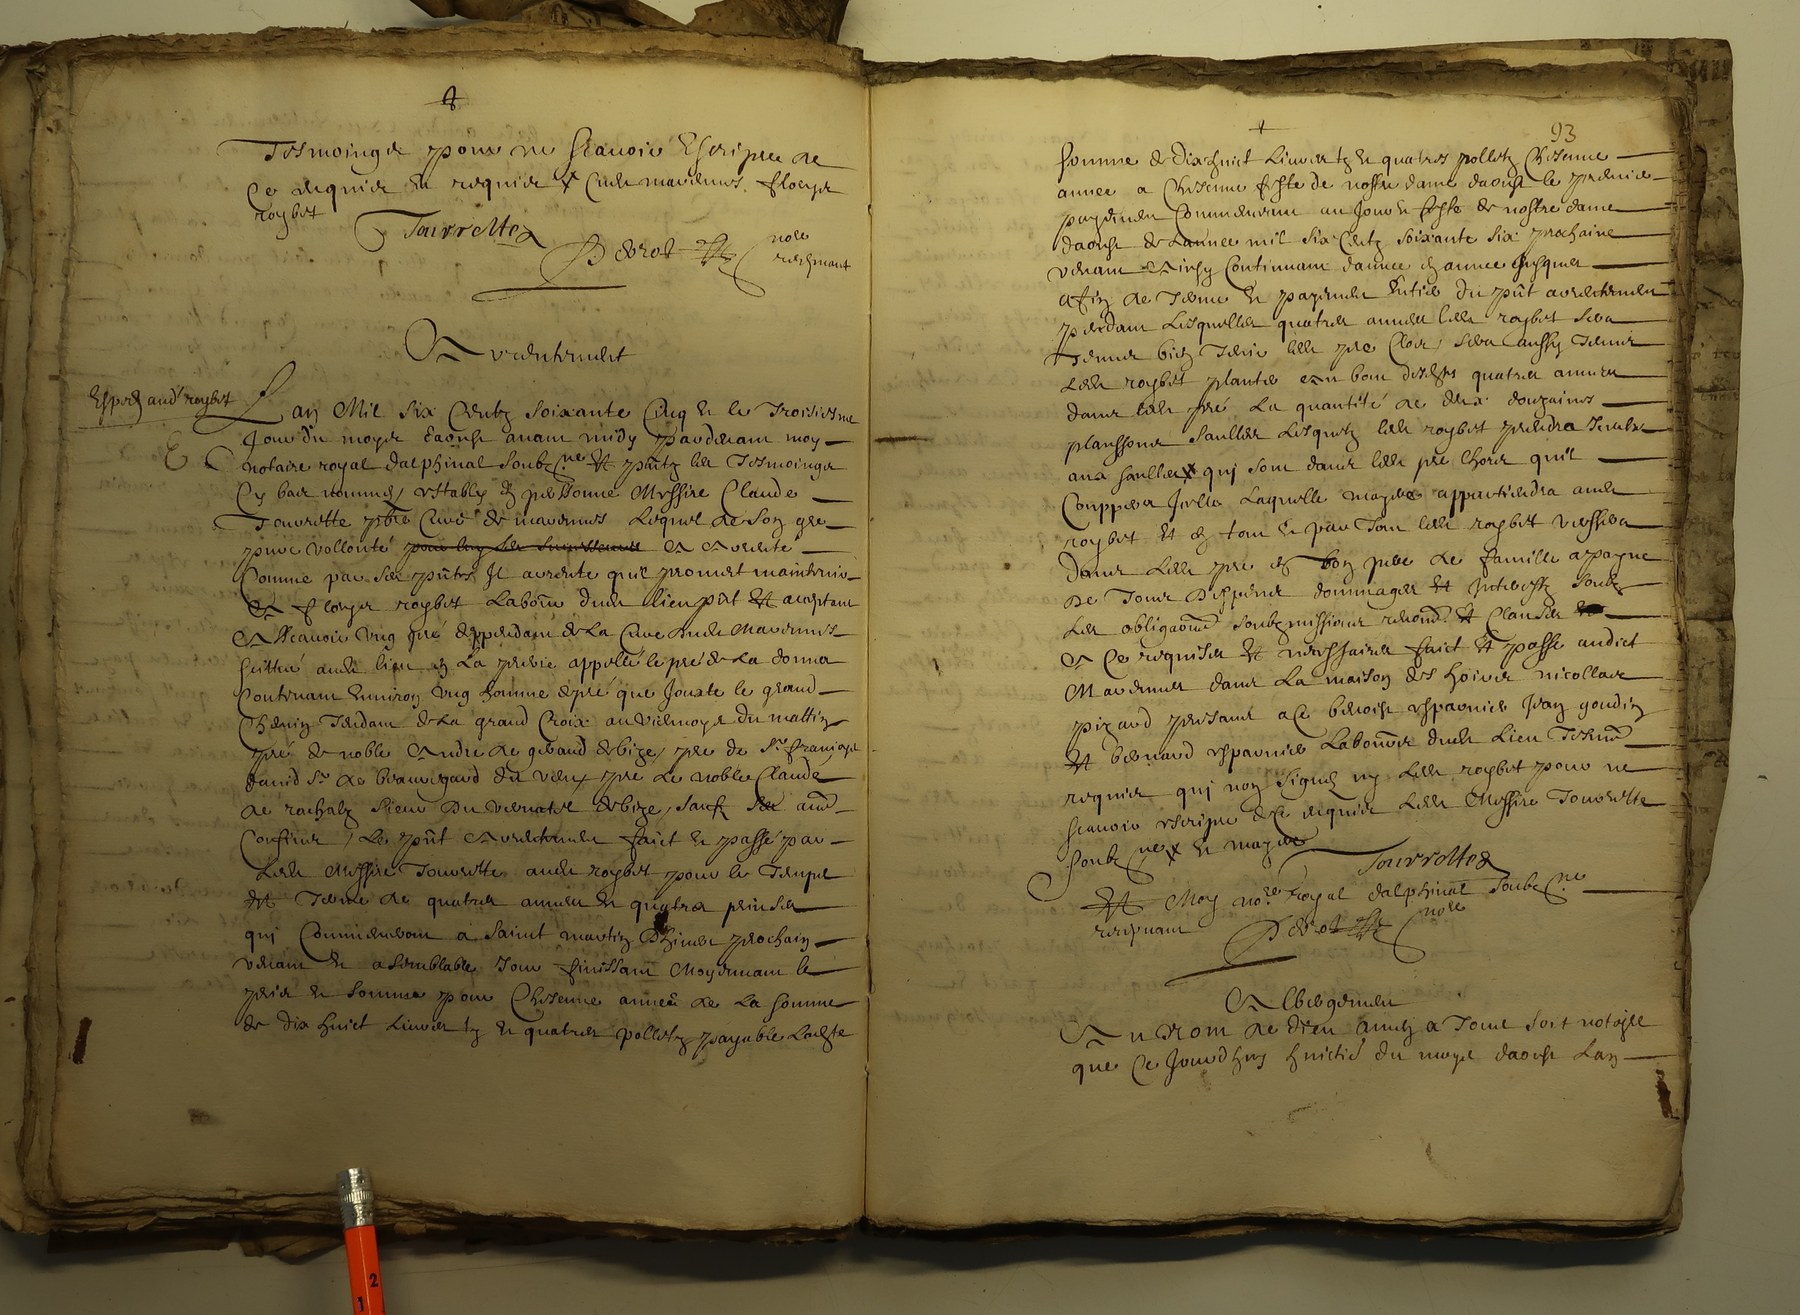 Tesmoinger pour ne scavoir Escripre de
ce requier et requier x audit mavennes. floerye
roybet
Tourrettez
Debrot no.re
recepvant
Arrentement
Expedi aud.t roybet
L'an Mil six Centz soixante Cinq et le Troisiesme
Jour du moyes daoust avant midy pardevant moy
notaire royal dalphinal soubz.ne et pñtz les Tesmoingz
Cy bas nommes, estably en personne Messire Claude
Tourrette pbre Curé de mavennes Lequel de son gré
pure vollonté et arrenté
Comme par ses pñtes Il arrente quil promet maintenir
A floerye roybet Labou.r dudit lieu pñt et acceptant
Assavoir ung pré deppendant de La Cure dudit Mavennes
scittué audit lieu en La prerie appellé le pré de La donna
Contenant environ ung homme de pré que Jouxte le grand
Chemin Tendant de La grand Croix au viemoye du mattin
pré de noble Andre de giraud de bize, pré de s.r françoys
david s.r de beauregard du vent pré de noble Claude
de rachais sieur du vernatel de bize, sauf ses aut.
Confins, Le pñt arrentement faict et passé par
Ledit Messire Tourrette audit roybet pour le Temps
et Terme de quatre annees et quatre prinses
qui Commenceront a saint martin Dhiver prochain
venant et a semblable Jour finissant Moyennant le
prix et somme pour Chescune année de La somme
de dix huict Livres tz et quatres polletz payable Laditte
93
somme de Dix huict Livres tz et quatres polletz Chescune
annee a Chescune feste de nostre dame daoust le premier
payement Commencera au Jour et feste de nostre dame
daoust de Lannee mil six Centz soixante six prochaine
venant et ainsy Continuant dannee en annee jusques
a fin de Terme et payement entier du pñt arrentement
pendant Lesquelles quatres annees ledit roybet sera
Tenus bien Tenir ledit pre Clos, sera aussy Tenus
Ledit roybet planter et au bout desdites quatres annees
dans ledit pré La quantité de deux douzaines
planssons saulles Lesquelz ledit roybet prendra
aux saulles x qui sont dans ledit pre lhors quil
Couppera Jcelle Laquelle appartiendra audit
roybet et en tout et par Tout ledit roybet versera
Dans Ledit pre en bon pere de famille a payne
De Tous Despens dommages et Interestz soubz
Les obligaõns soubzmissions renon.s et Clauses
A Ce requises et necessaires faict et passé audict
Mavennes dans La maison des hoires nicollas
pizard presant a Ce benoist esparvier Jean goudin
et bernard esparvier Labou.rs dudit Lieu Tesm.
requis qui non signes ny Ledit roybet pour ne
scavoir escripre de Ce requier Ledit Messire Tourrette
soubz.ne x
Tourrettez
Et Moy no.re Royal dalphinal soubz.ne
recepvant Debrot no.re
Albergement
Au Nom de dieu amen a Tous soit notoire
que Ce Jourdhuy huictié du moys daoust Lan